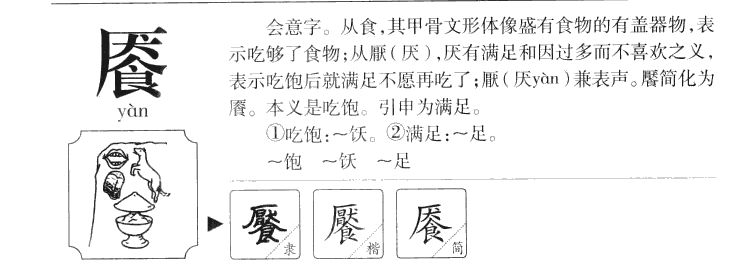 餍
yàn
会意字。从食,其甲骨文形体像盛有食物的有盖器物,表
示吃够了食物;从厭(厌),厌有满足和因过多而不喜欢之义,
表示吃饱后就满足不愿再吃了;厭(厌yàn)兼表声。饜简化为
餍。本义是吃饱。引申为满足。
①吃饱:～饫。②满足:～足。
～饱 ～饫 ～足
饜 隶 饜 楷 餍 简